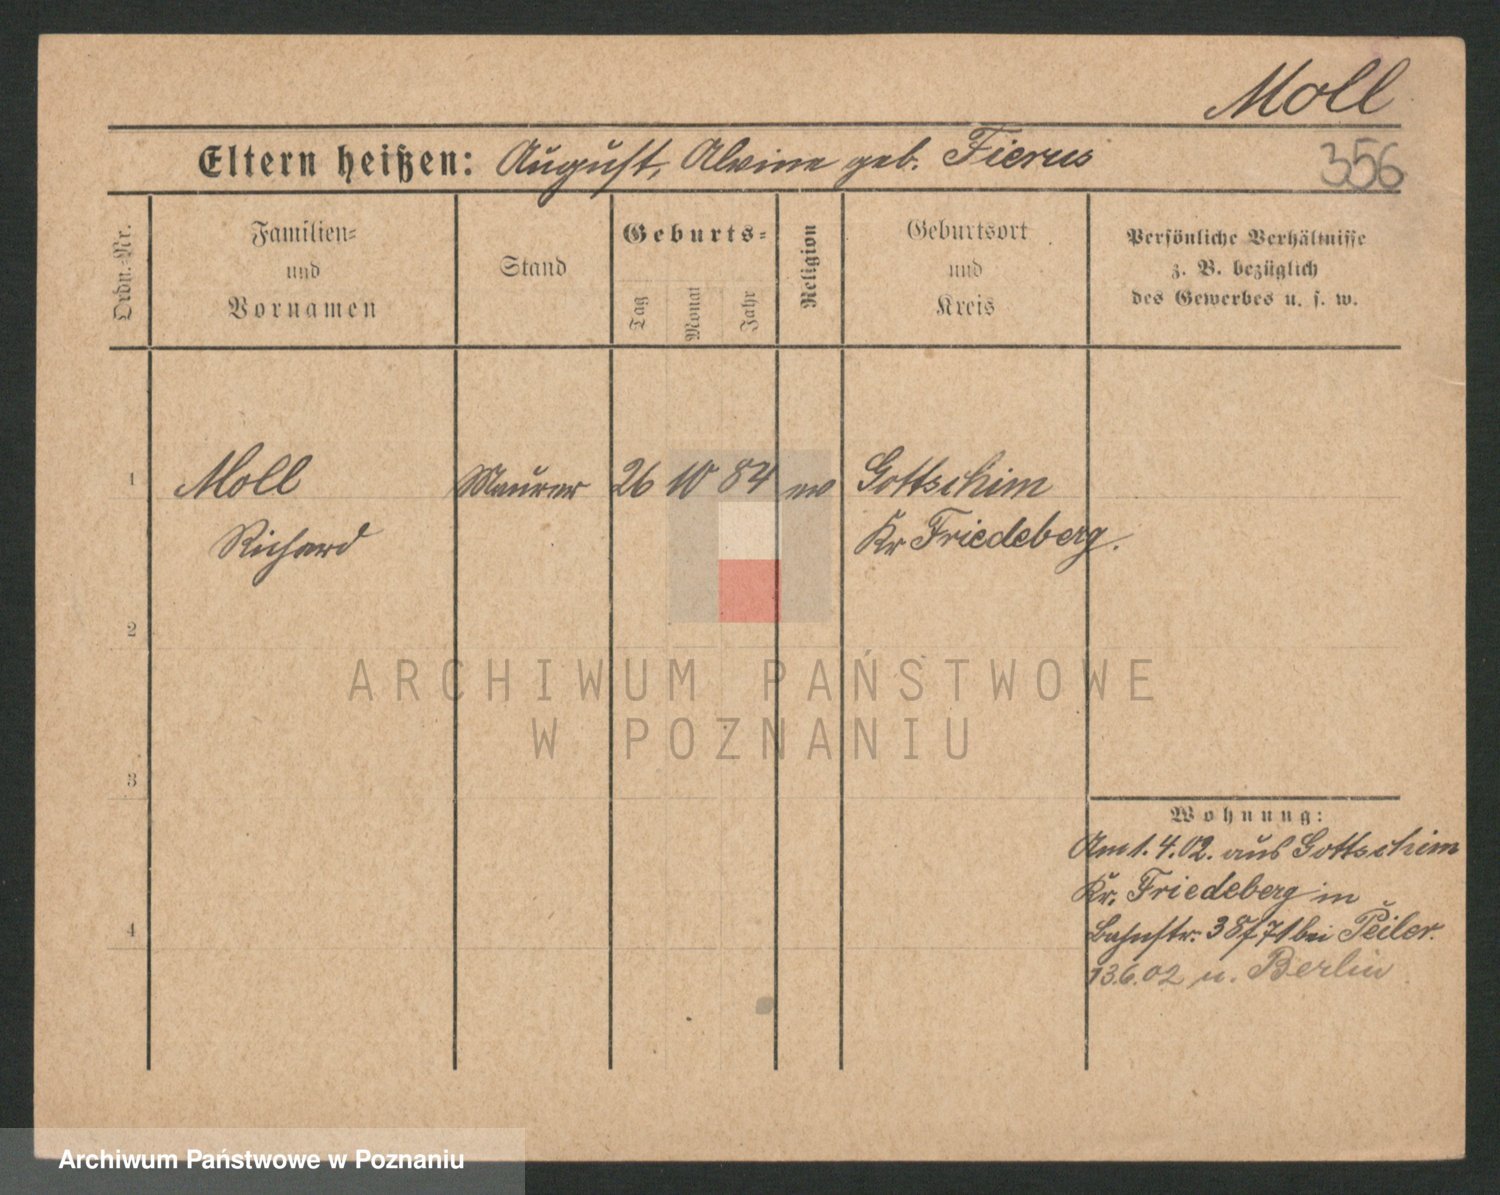 Moll
Eltern heißen: August, Alwine geb. Fierus
356
Ordn.-Nr.
Familien-
und
Vornamen
Stand
Geburts-
Tag
Monat
Jahr
Religion
Geburtsort
und
Kreis
Persönliche Verhältnisse
z. B. bezüglich
des Gewerbes u. s. w.
1 Moll Maurer 26 10 84 ev Gottschim
Richard Kr Friedeberg.
2
ARCHIWUM PAŃSTWOWE
W POZNANIU
3
Wohnung:
Am 1. 4. 02. aus Gottschim
Kr. Friedeberg in
4
Bahnstr. 38/71 bei Peiler.
13.6.02 n. Berlin
Archiwum Państwowe w Poznaniu